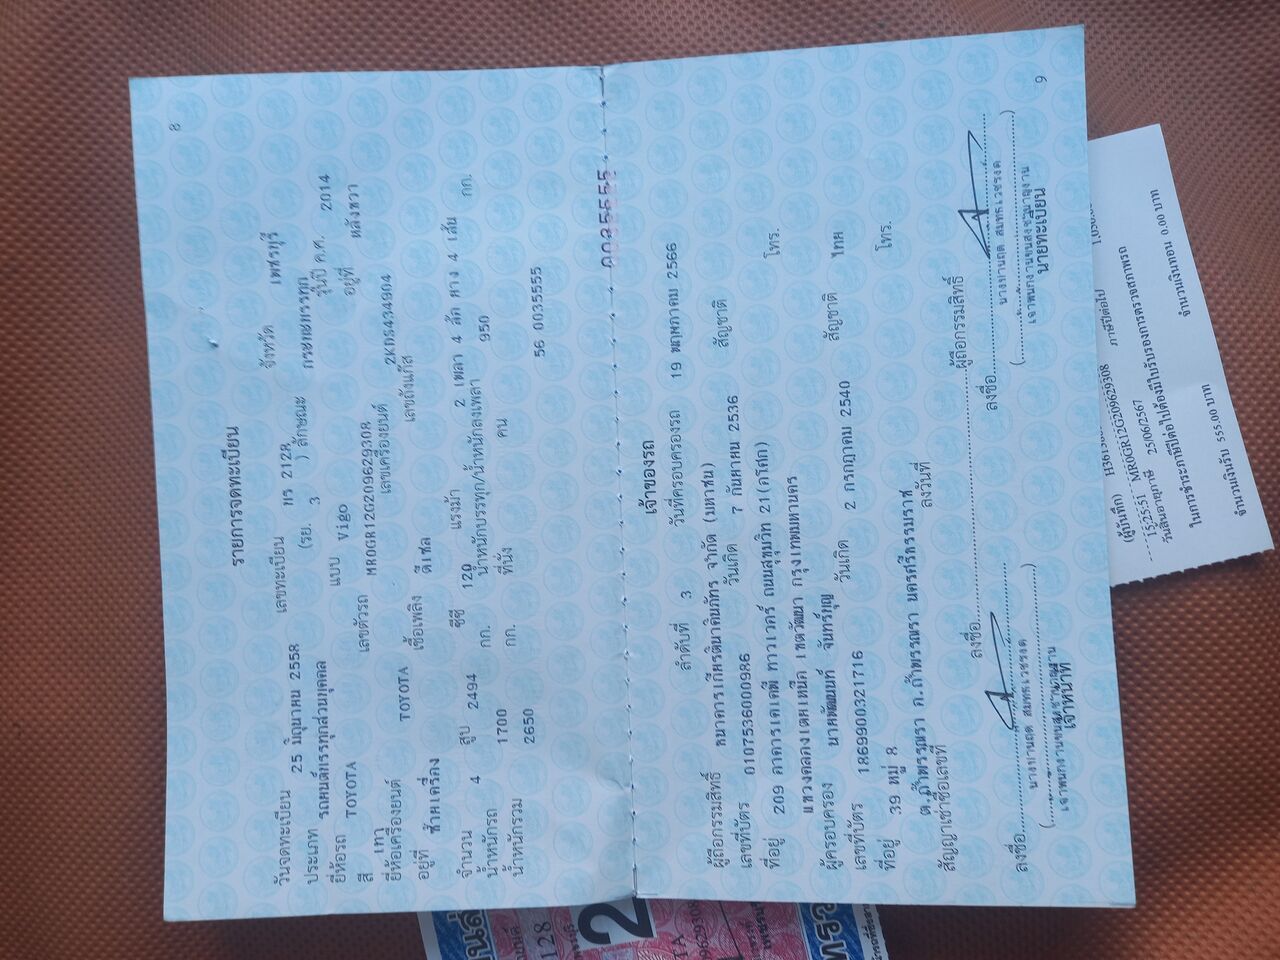 8
รายการจดทะเบียน
วันจดทะเบียน 25 มิถุนายน 2558 เลขทะเบียน 2128 จังหวัด เพชรบุรี
ประเภท รถยนต์บรรทุกส่วนบุคคล (รย. 3 ) ลักษณะ กระบะบรรทุก
ยี่ห้อรถ TOYOTA แบบ Vigo รุ่นปี ค.ศ. 2014
สี เทา เลขตัวรถ MR0GR12G209629308 อยู่ที่ หลังขวา
ยี่ห้อเครื่องยนต์ TOYOTA เลขเครื่องยนต์ 2KDS434904
อยู่ที่ ซ้ายเครื่อง เชื้อเพลิง ดีเซล เลขถังแก๊ส
จำนวน 4 สูบ 2494 ซีซี 120 แรงม้า 2 เพลา 4 ล้อ ยาง 4 เส้น
น้ำหนักรถ 1700 กก. น้ำหนักบรรทุก/น้ำหนักลงเพลา 950 กก.
น้ำหนักรวม 2650 กก. ที่นั่ง คน
56 0035555
0035555
เจ้าของรถ
ลำดับที่ 3 วันที่ครอบครองรถ 19 พฤษภาคม 2566
ผู้ถือกรรมสิทธิ์ ธนาคารเกียรตินาคินภัทร จำกัด (มหาชน)
เลขที่บัตร 0107536000986 วันเกิด 7 กันยายน 2536 สัญชาติ
ที่อยู่ 209 อาคารเคเคพี ทาวเวอร์ ถนนสุขุมวิท 21(อโศก) โทร.
แขวงคลองเตยเหนือ เขตวัฒนา กรุงเทพมหานคร
ผู้ครอบครอง จันทร์บุญ
เลขที่บัตร 1869900321716 วันเกิด 2 กรกฎาคม 2540 สัญชาติ ไทย
ที่อยู่ 39 หมู่ 8 โทร.
ต.ถ้ำพรรณรา อ.ถ้ำพรรณรา นครศรีธรรมราช
สัญญาเช่าซื้อเลขที่ ลงวันที่
ลงชื่อ ผู้ถือกรรมสิทธิ์
ลงชื่อ ลงชื่อ
เจ้าพนักงานขนส่งชำนาญงาน เจ้าพนักงานขนส่งชำนาญงาน
เจ้าหน้าที่ นายทะเบียน
9
(ผู้บันทึก) ภาษีปีต่อไป
15:25:51 MR0GR12G209629308
วันสิ้นอายุภาษี 25/06/2567
ในการชำระภาษีปีต่อไปต้องมีใบรับรองการตรวจสภาพรถ
จำนวนเงินรับ 555.00 บาท จำนวนเงินทอน 0.00 บาท
128
2